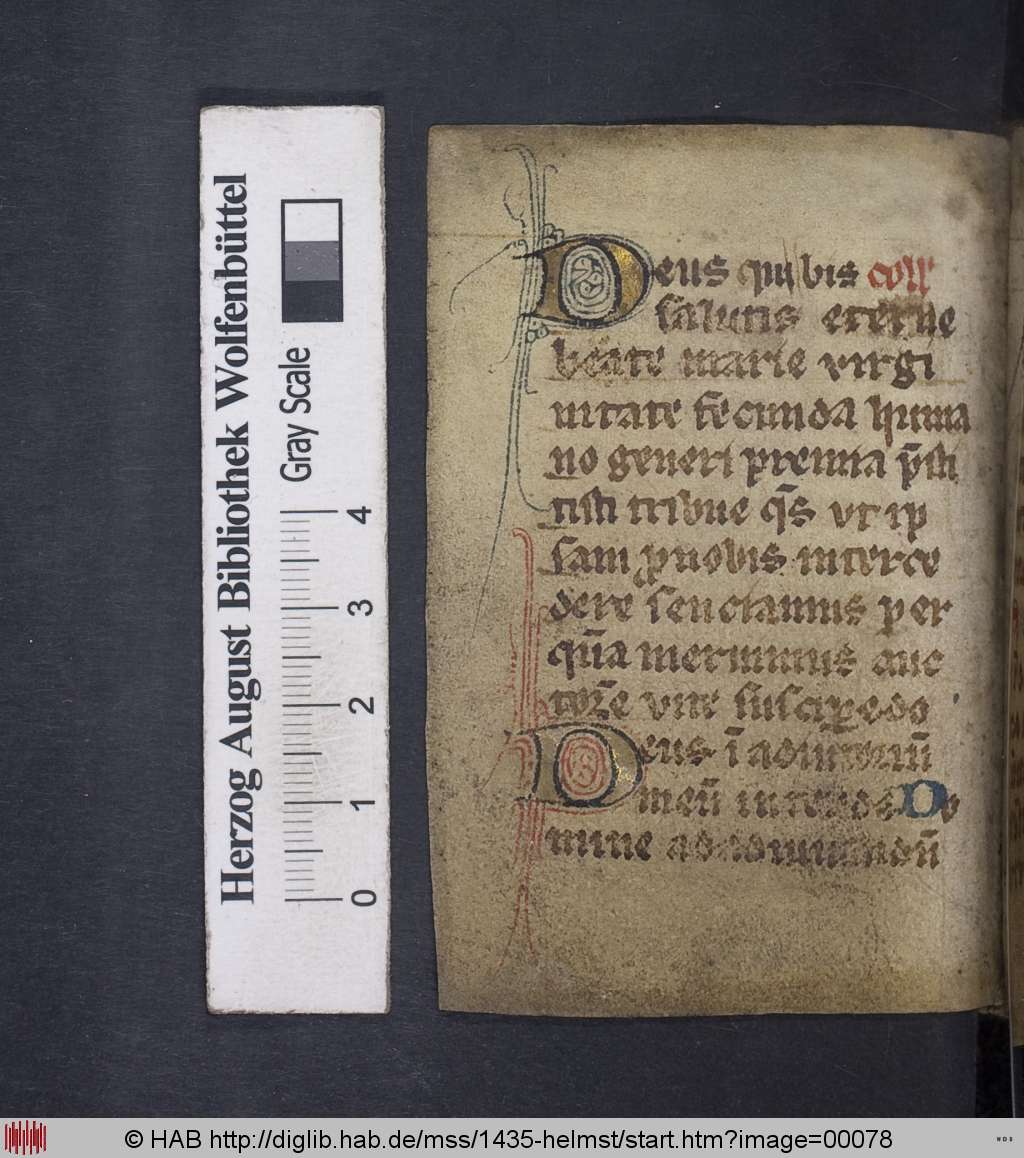 Herzog August Bibliothek Wolfenbüttel
Gray Scale
0 1 2 3 4
Deus qui bis coll
salutis eterne
beate marie virgi
nitate fecunda huma
no generi premia p̄sti
tisti tribue q̄s vt ip
sam pro nobis interce
dere senciamus per
quā meruimus auc
torē vite suscipe do
Deus ī adiutoriū
meū intende Do
mine ad adiuuandū
© HAB http://diglib.hab.de/mss/1435-helmst/start.htm?image=00078